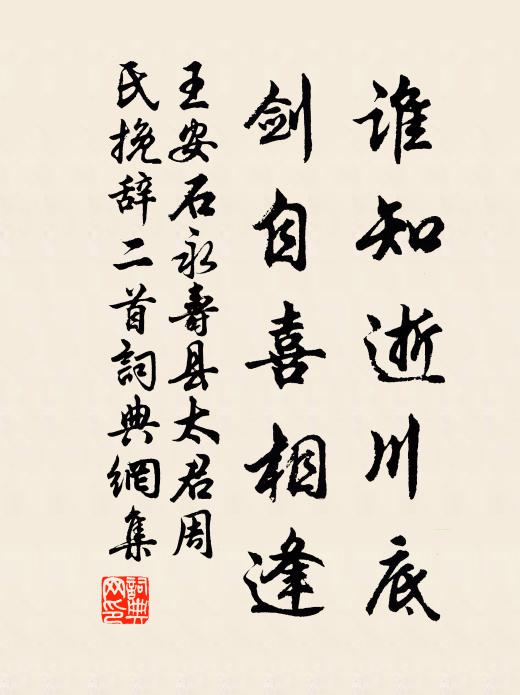 谁知逝川底
剑自喜相逢
王安石永壽县太君周
氏挽辞二首詞典網集
詞典网印